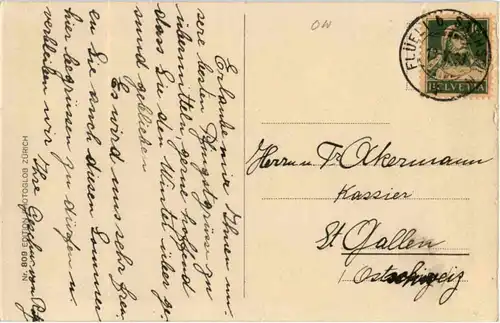 Erlaube mir Ihnen un-
sere besten Pfingstgrüsse zu
übermitteln, gern hoffend
dass Sie den Winter über ge-
sund geblieben.
Es wird uns sehr freu-
en Sie auch diesen Sommer
hier begrüssen zu dürfen u.
verbleiben wir
Ihre
Nr. 809 EDITION PHOTOGLOB ZÜRICH
OW
FLÜELI
HELVETIA
Herrn u. Fr Ackermann
Kassier
St Gallen
Ostschweiz